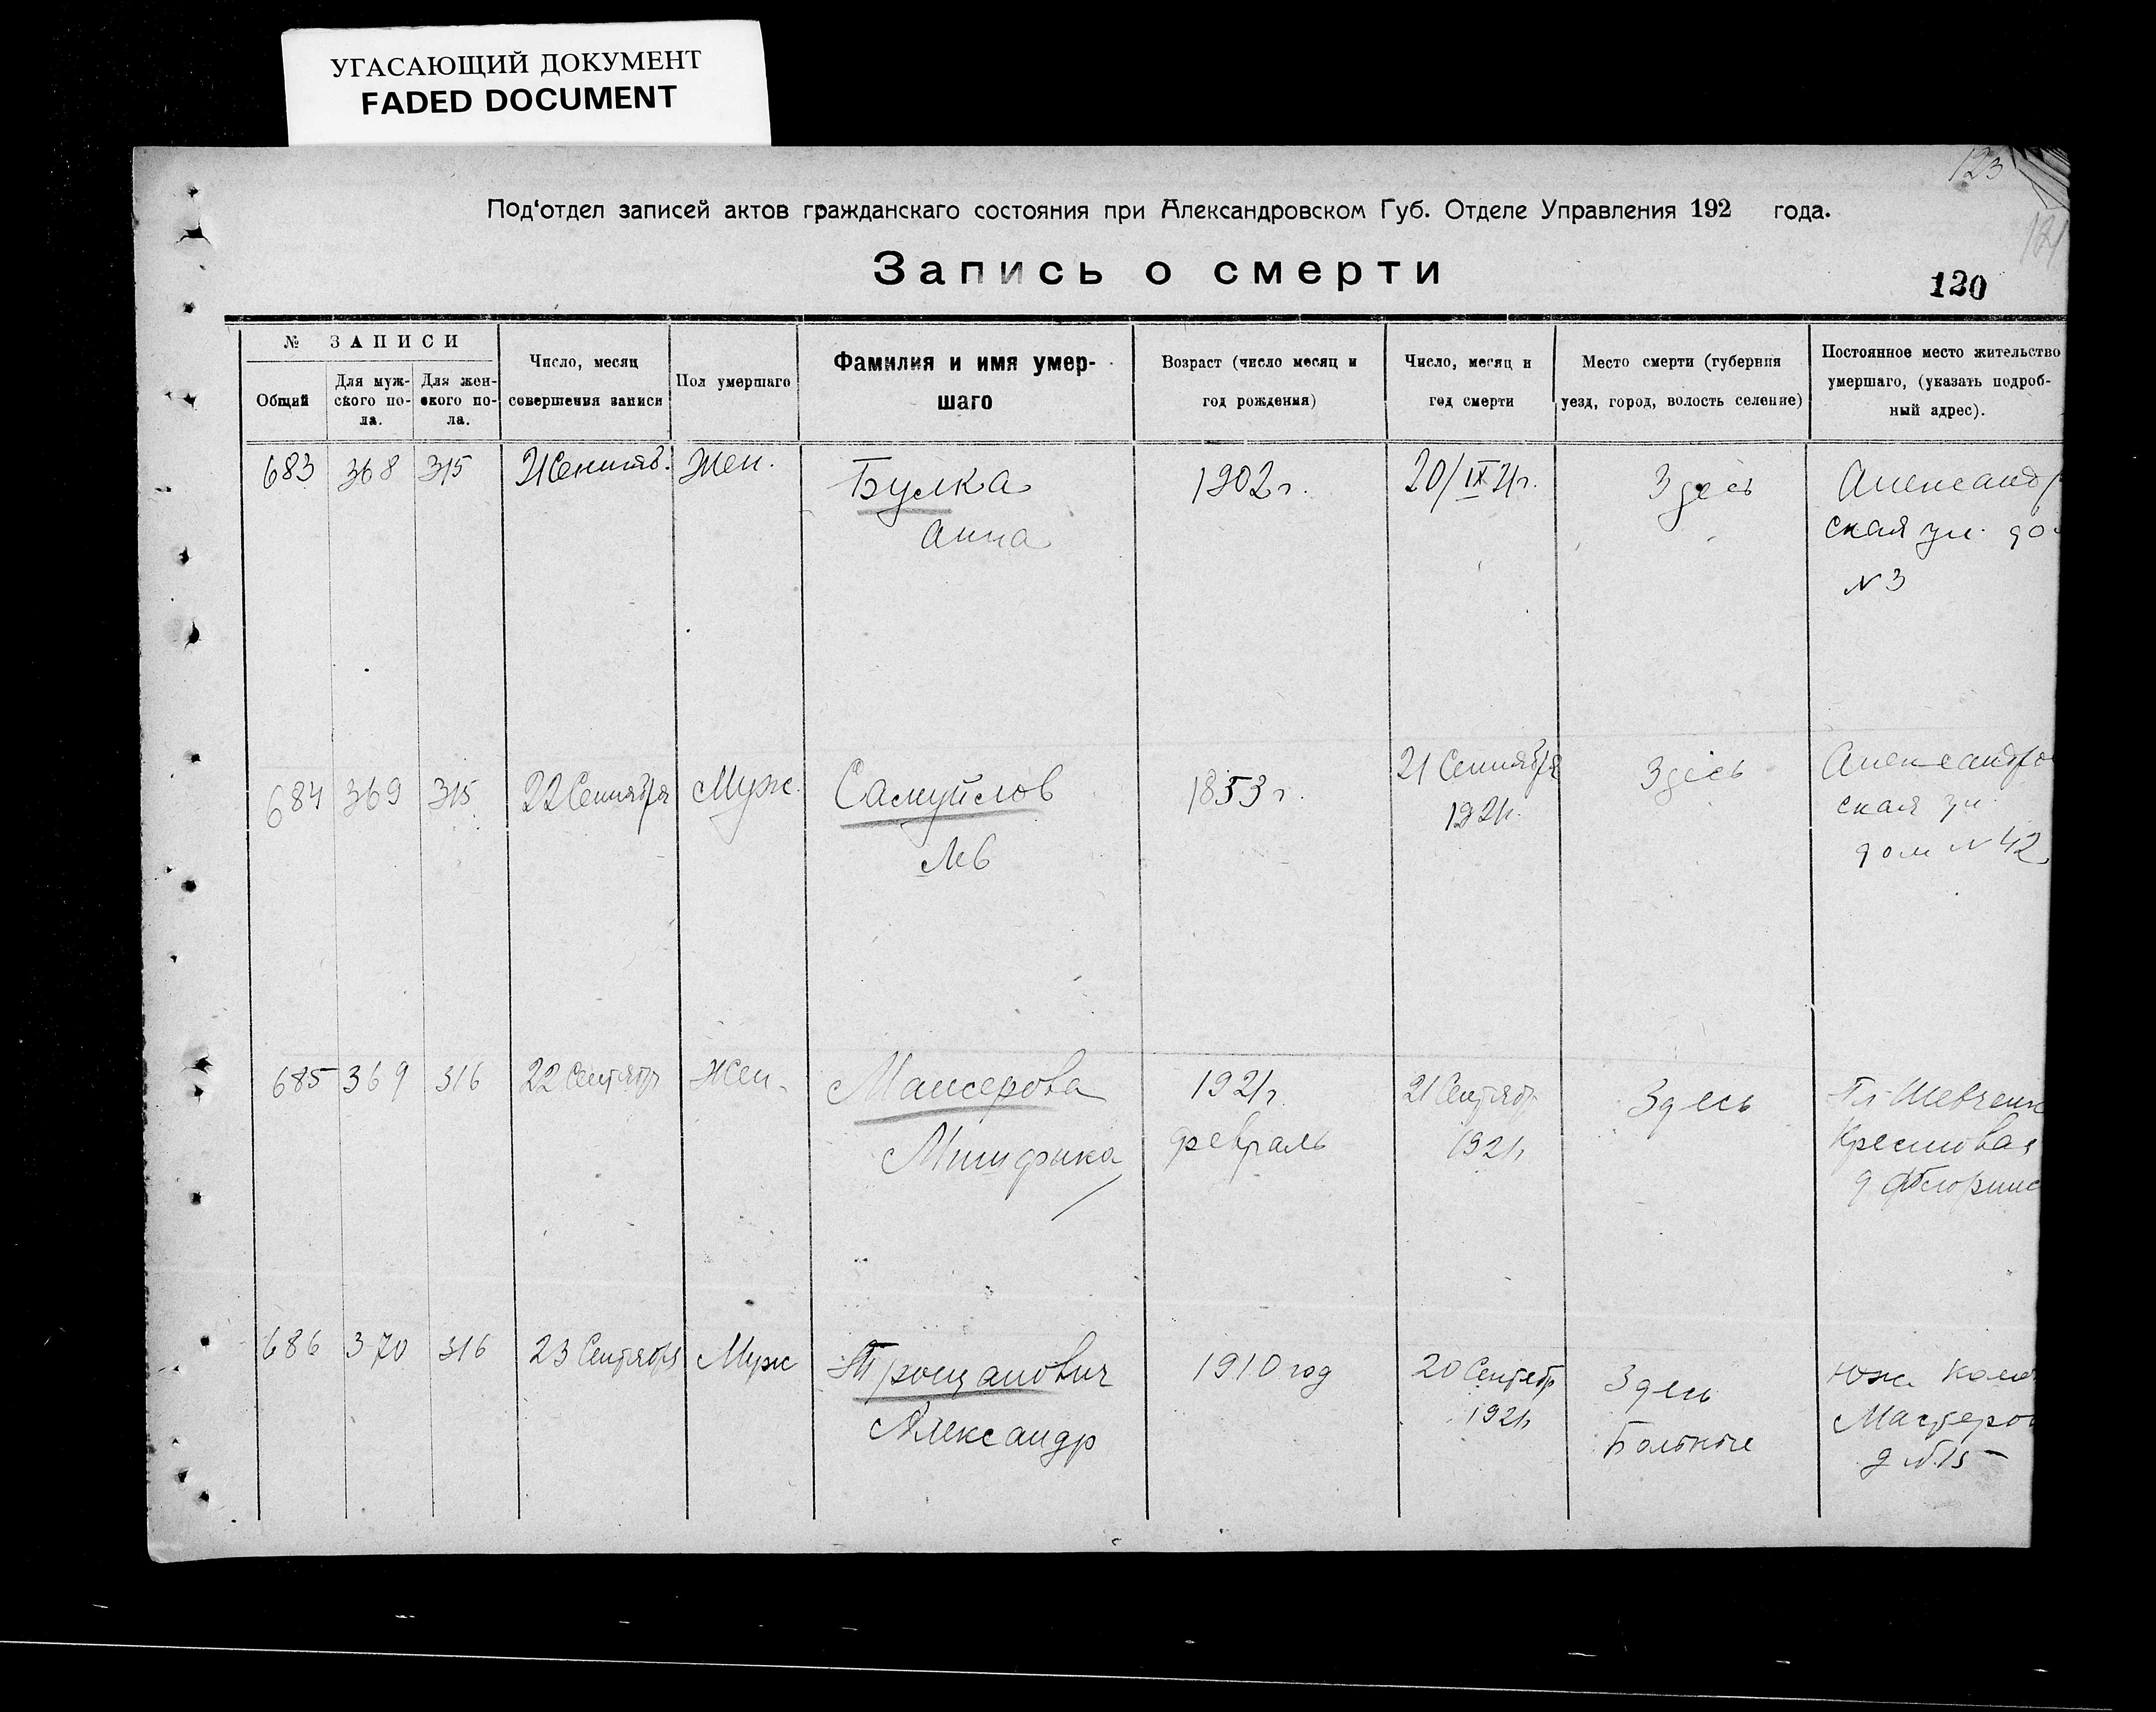 УГАСАЮЩИЙ ДОКУМЕНТ
FADED DOCUMENT
123
121
Под'отдел записей актов гражданскаго состояния при Александровском Губ. Отделе Управления 192 года.
Запись о смерти
120
№ ЗАПИСИ
Общий
Для муж-
ского по-
ла.
Для жен-
ского по-
ла.
Число, месяц
совершения записи
Пол умершаго
Фамилия и имя умер-
шаго
Возраст (число месяц и
год рождения)
Число, месяц и
год смерти
Место смерти (губерния
уезд, город, волость селение)
Постоянное место жительство
умершаго, (указать подроб-
ный адрес).
683 368 315 21 Сентяб. Жен. Булка 1902 г. 20/IX 21 г. Здесь Александр
Анна ская ул. до
N 3
684 369 315 22 Сентября Муж. Самуйлов 1853 г. 21 Сентября Здесь Александро
1921 г. ская ул.
Лев дом N 42
685 369 316 22 Сентябр Жен. Мансерова 1921 г. 21 Сентябр Здесь Пл Шевченк
февраль 1921 г. Крестовая
д
686 370 316 23 Сентября Муж Трощанович 1910 год 20 Сентебр Здесь Южн. Коло
Александр 1921 г. Больнице Мастеров
д N. 15